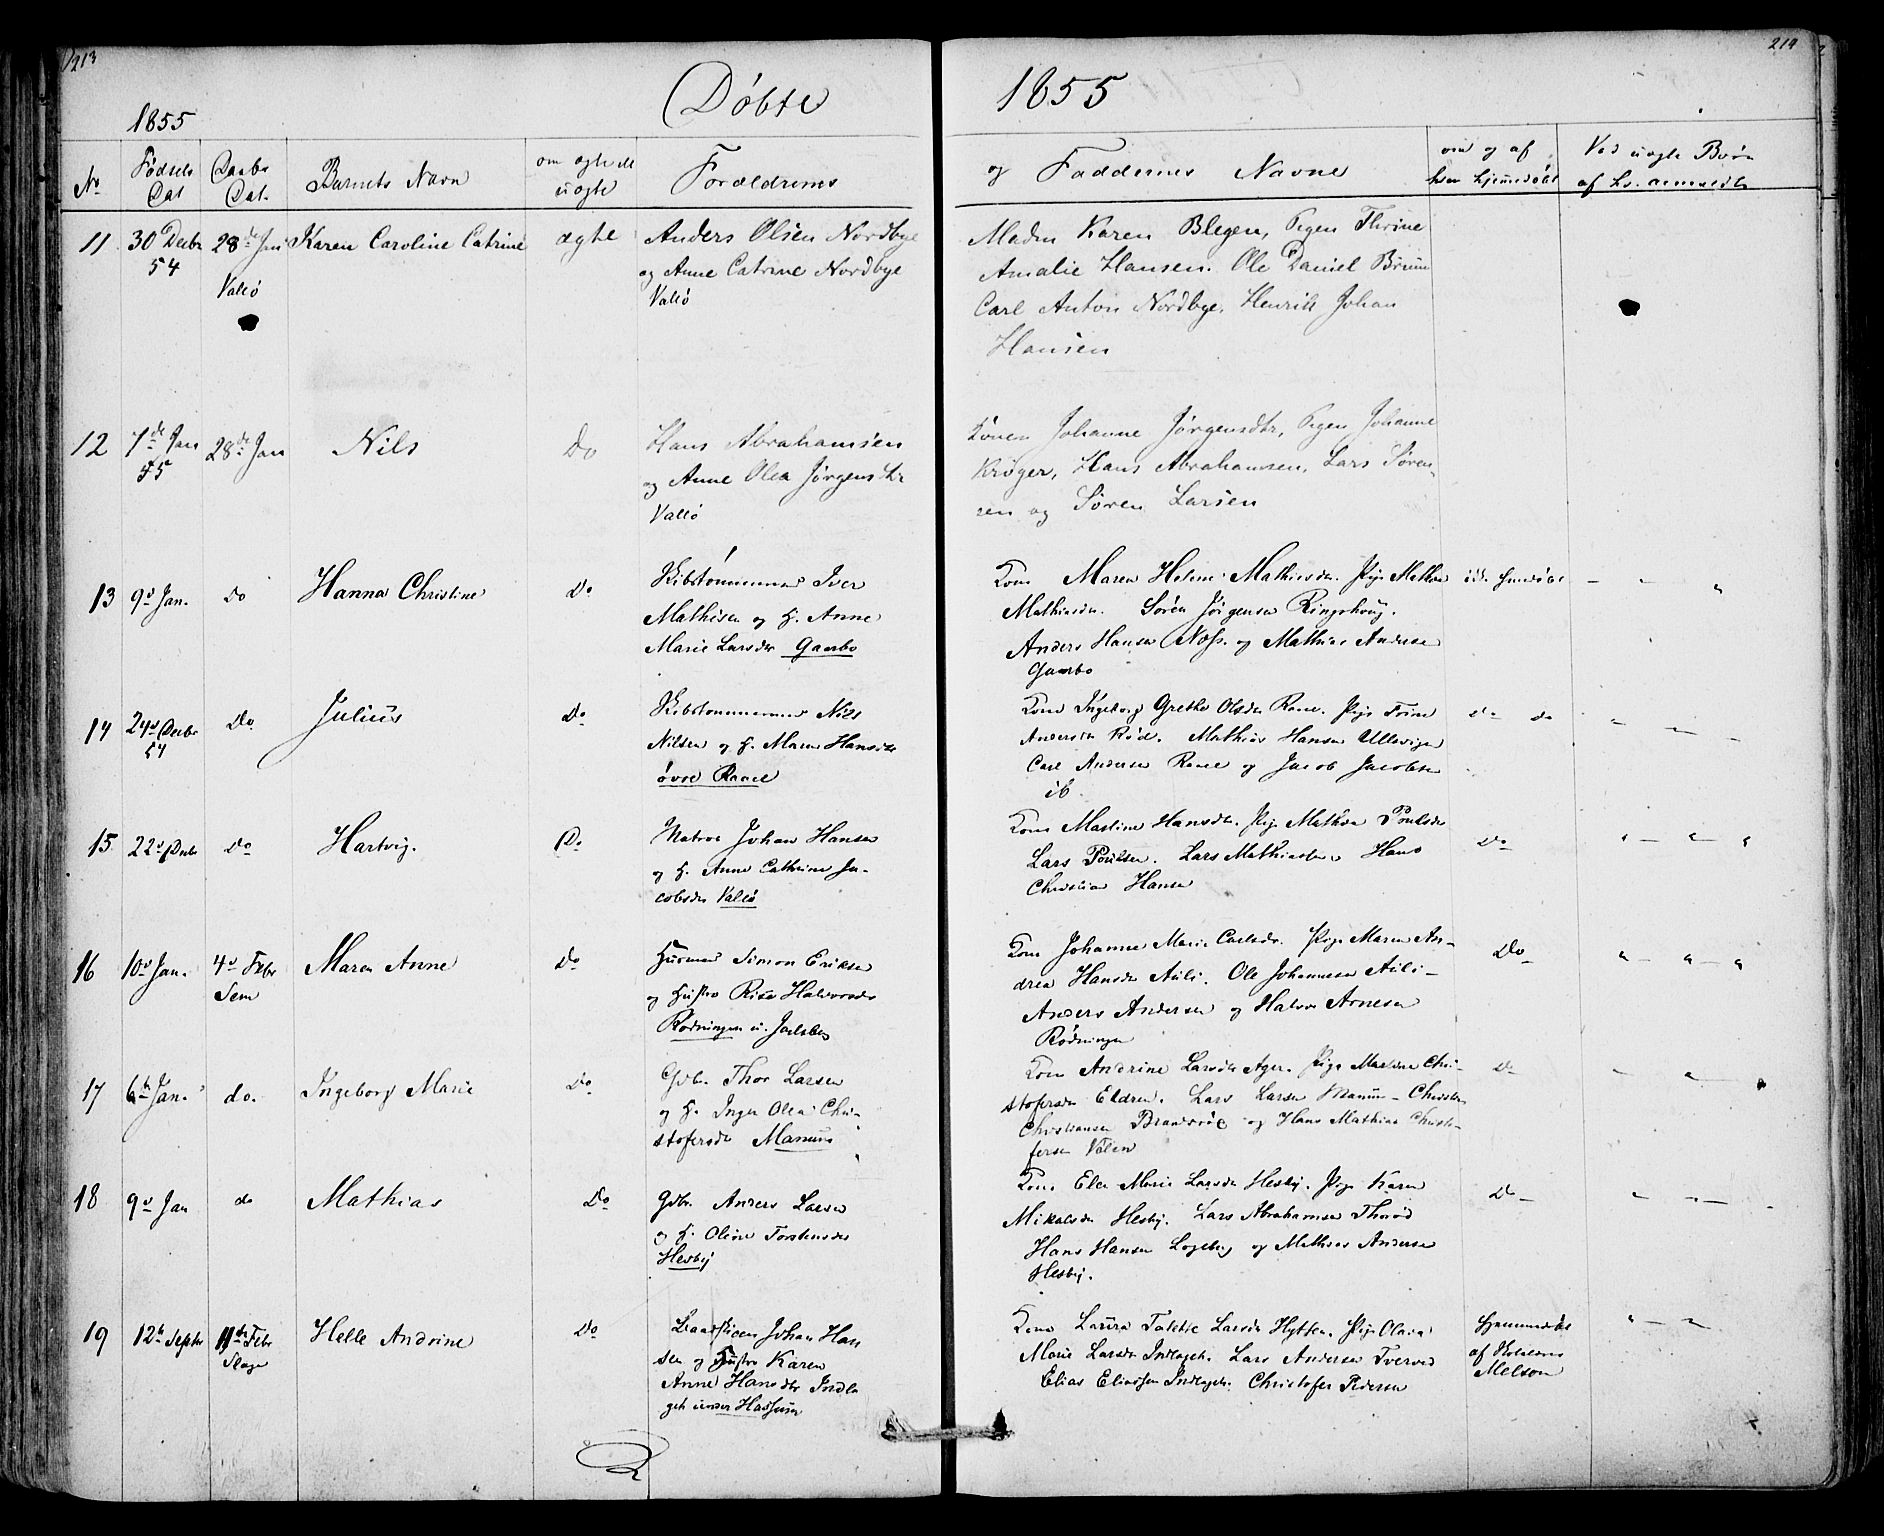 213
Døbte
1855
1855
214
No
Fødsels Dat
Daabs Dat.
Barnets Navn
om ægte el uægte
Forældrenes
og Faddernes Navne
om og af hvem hjemedøbt
Ved uægte Børn
11 30 Decbr 28de Jan Karen Caroline Catrine ægte Anders Olsen Nordbye
54 Valló og Anne Catrine Nordbye
Valló
Madm Karen Blegen, Pigen Thrine
Amalie Hansen. Ole Daniel Bruun
Carl Anton Nordbye, Henrik Johan
Hansen
12 7de Jan 28de Jan Nils Do Hans Abrahamsen
55 og Anne Olea Jørgensdtr
Valló
Konen Johanne Jørgensdtr, Pigen Johanne
Krøger, Hans Abrahamsen, Lars Søren-
sen og Søren Larsen
13 9d Jan. do Hanna Christine Do Skibstømmermd Iver
Mathisen og H. Anne
Marie Larsdr Gaarbo
Kone Maren Helene Mathisdr. Pige Mathea
Mathisdr. Søren Jørgensen Ringshoug.
Anders Hansen Næss. og Mathias Andersen
Gaarbo
14 24d Decbr Do Julius Do Skibstømmermd Nils
54 Nilsen og H. Maren Hansdr
øvre Raael
Kone Ingeborg Grethe Olsdr Raael. Pige
Andersdr Rød. Mathias Hansen Ullevigen
Carl Andersen Raael og Jacob Jacobsen
ib.
do do
15 22d Decbr Do Hartvig. Do Matros Johan Hansen
og H. Anne Cathrine Ja-
cobsdr Valló
Kone Martine Hansdr. Pige Mathea Poulsdr
Lars Poulsen. Lars Mathiasen Hans
Christian Hansen
Do
16 10d Jan. 4d Febr Maren Anne Do Huusmd Simon Eriksen
Sem og Hustro Halvorsdr
Rødningen u. Jarlsberg
Kone Johanne Marie Carlsdr. Pige Maren An-
drea Hansdr Auli. Ole Johannesen Auli-
Anders Andersen og Halvor Arnesen
Rødningen
Do
17 6te Jan. do. Ingeborg Marie Do Gdbr. Thor Larsen
og H. Inger Olea Chri-
stofersdr
Kone Andrine Larsdr Ager. Pige Maren Chri-
stofersdr Eldren. Lars Larsen
og Hans Mathias Christo-
fersen
Do
18 9d Jan do Mathias Do Gdbr. Anders Larsen
og H. Oline Torstensdr
Hesby
Kone Elen Marie Larsdr Hesby. Pige Karen
Mikalsdr Hesby. Lars Abrahamsen Thorød
Hans Hansen Logeberg og Mathias Andersen
Hesby.
Do
19 12te Septbr 11te Febr Helle Andrine Do Johan Han
Slagen sen og Hustro Karen
Anne Hansdtr Indla
get under
Kone Laura Larsdr Hytten. Pige Olava
Marie Larsdr Indlaget. Lars Andersen Tverved
Elias Eliassen Indlaget. Christofer Pedersen
Hjemmedøbt
af
Melsom